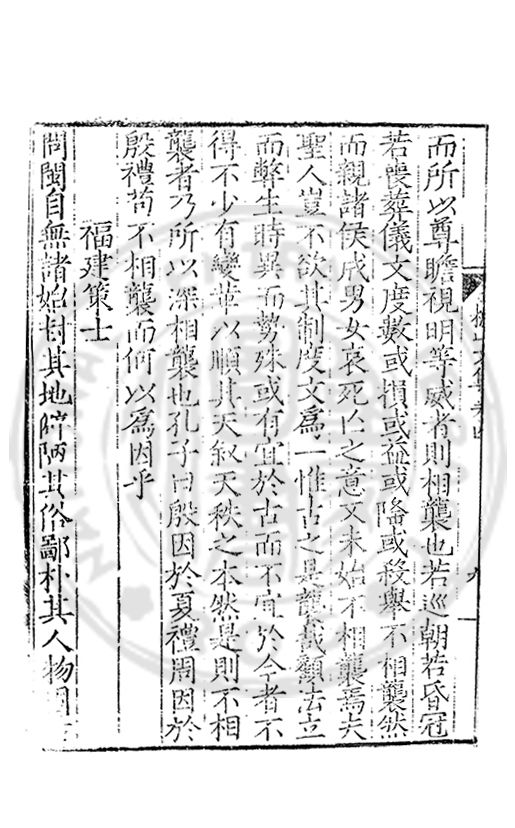 而所以尊瞻視明等威者則相襲也若巡朝若昏冠
若喪葬儀文度數或損或益或隆或殺舉不相襲然
而親諸侯成男女哀死亡之意又未始不相襲焉夫
聖人豈不欲其制度文為一惟古之是襲哉顧法立
而弊生時異而勢殊或有宜於古而不宜於今者不
得不少有變革以順其天叙天秩之本然是則不相
襲者乃所以深相襲也孔子曰殷因於夏禮周因於
殷禮苟不相襲而何以為因乎
福建策士
問閩自無諸始封其地僻陋其俗鄙朴其人物
文集卷四
九